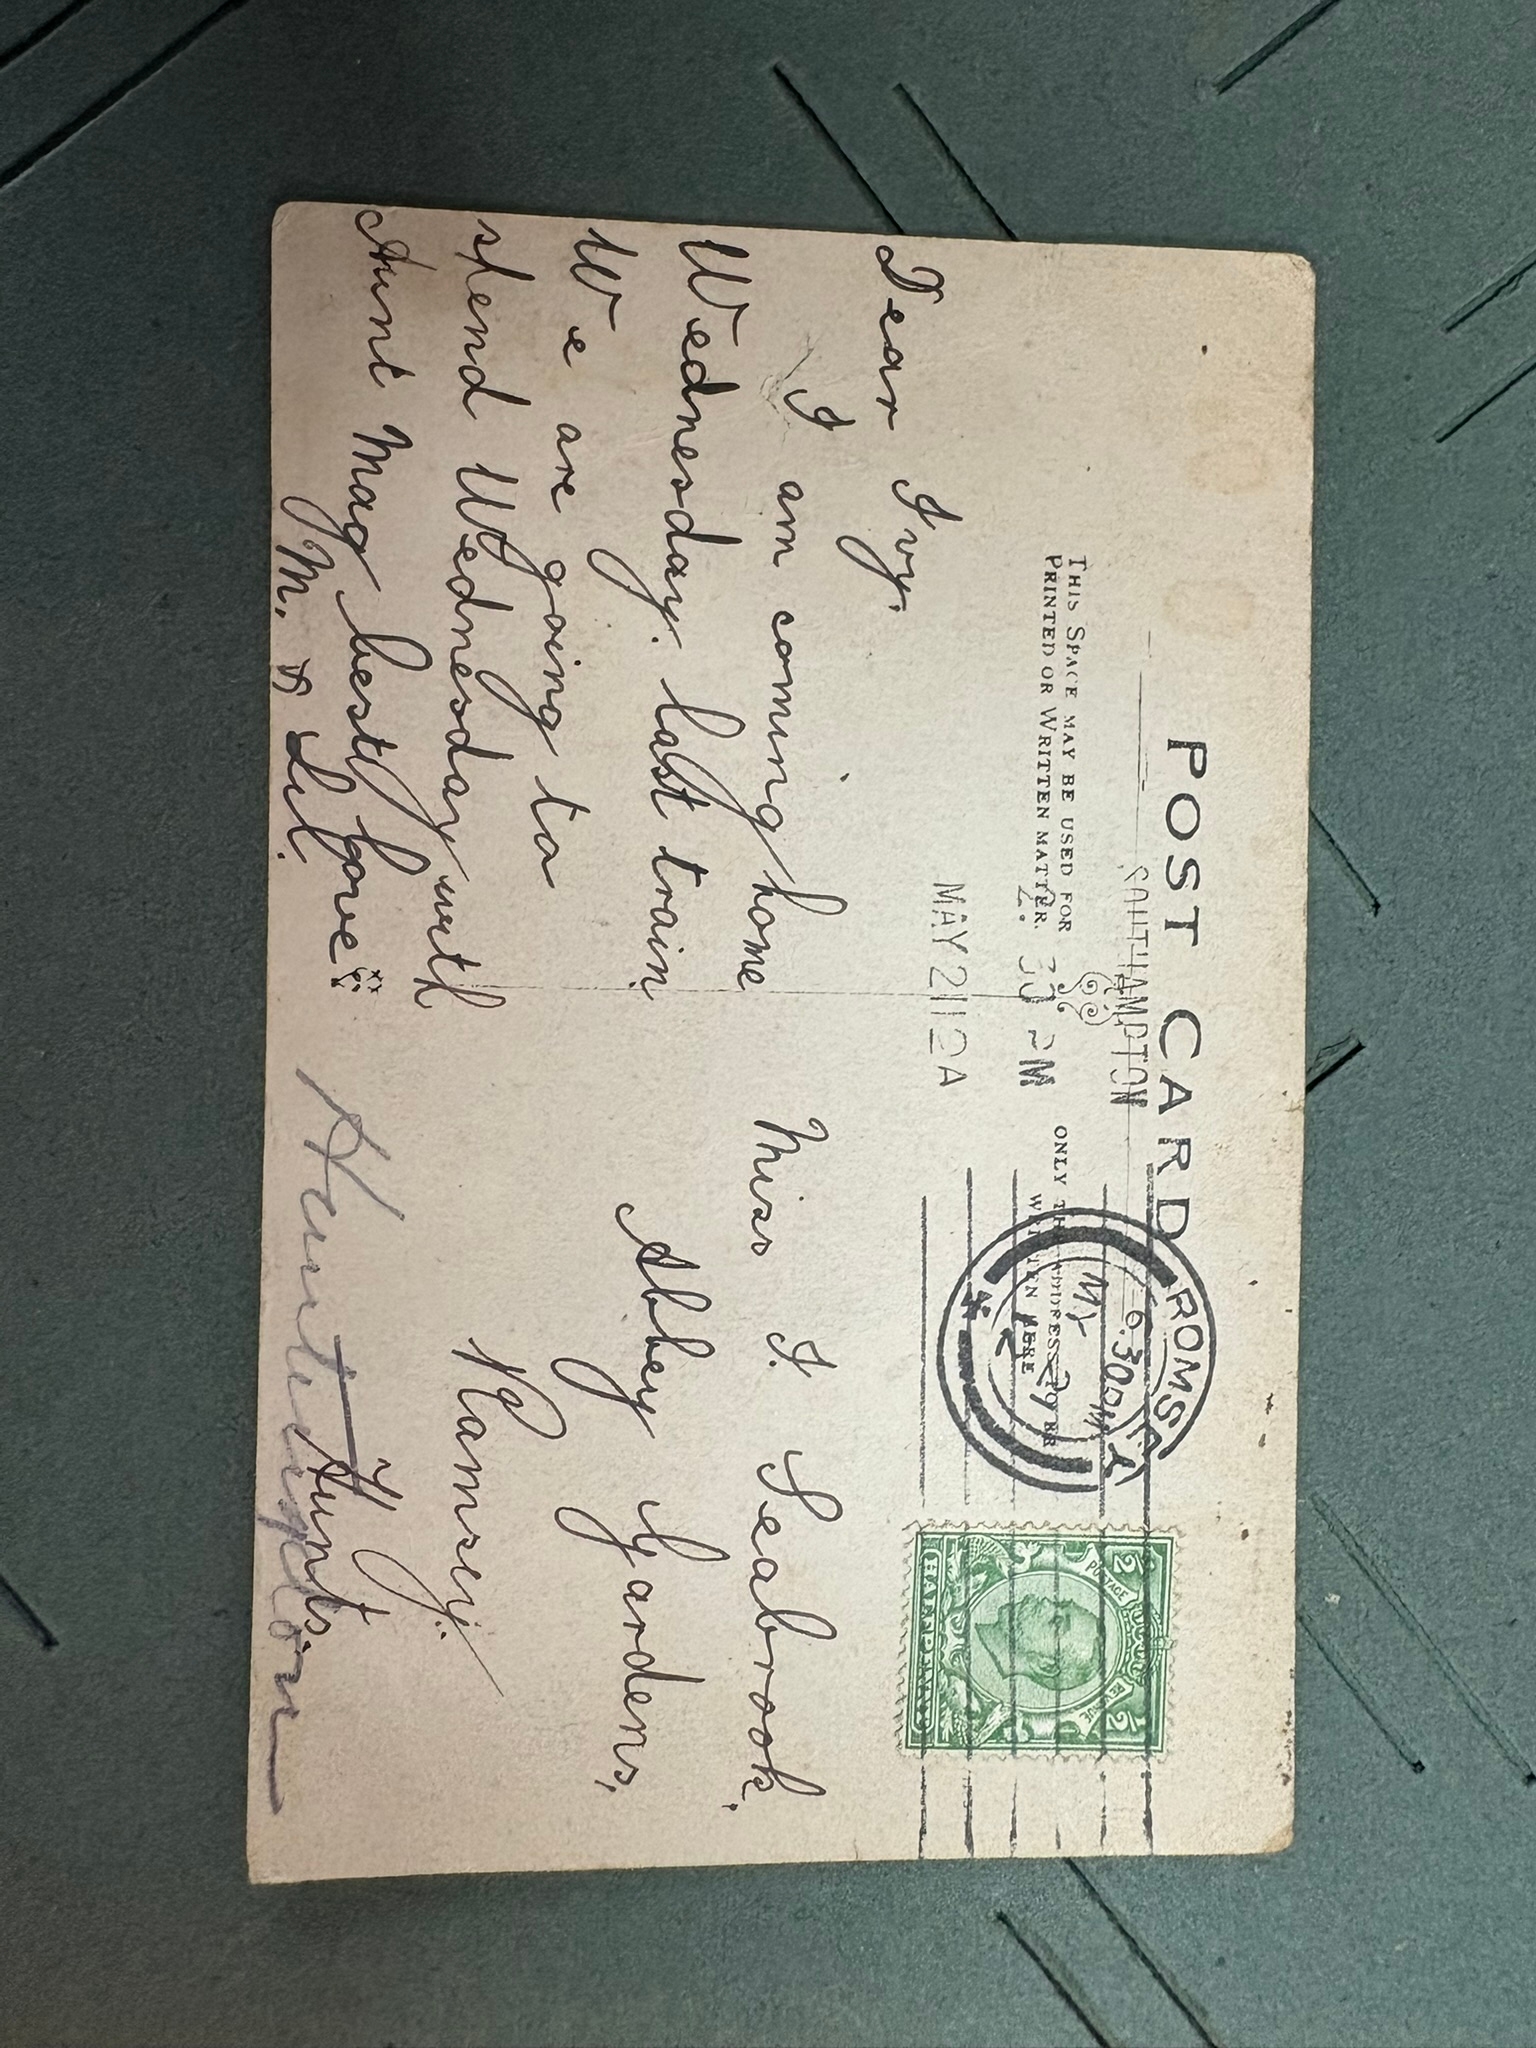 POST CARD
SOUTHAMPTON
THIS SPACE MAY BE USED FOR
PRINTED OR WRITTEN MATTER.
2. 30 PM
MAY 21 12 A
ONLY THE ADDRESS TO BE
WRITTEN HERE
ROMSEY
6.30 PM
MY 21
12
½ POSTAGE REVENUE ½
HALFPENNY
Dear Ivy.
I am coming home
Wednesday. last train.
We are going to
spend Wednesday with
Aunt Mag best love
M. & Lil.
Miss I. Seabrook.
Abbey Gardens,
Ramsey.
Hunts.
Huntingdon